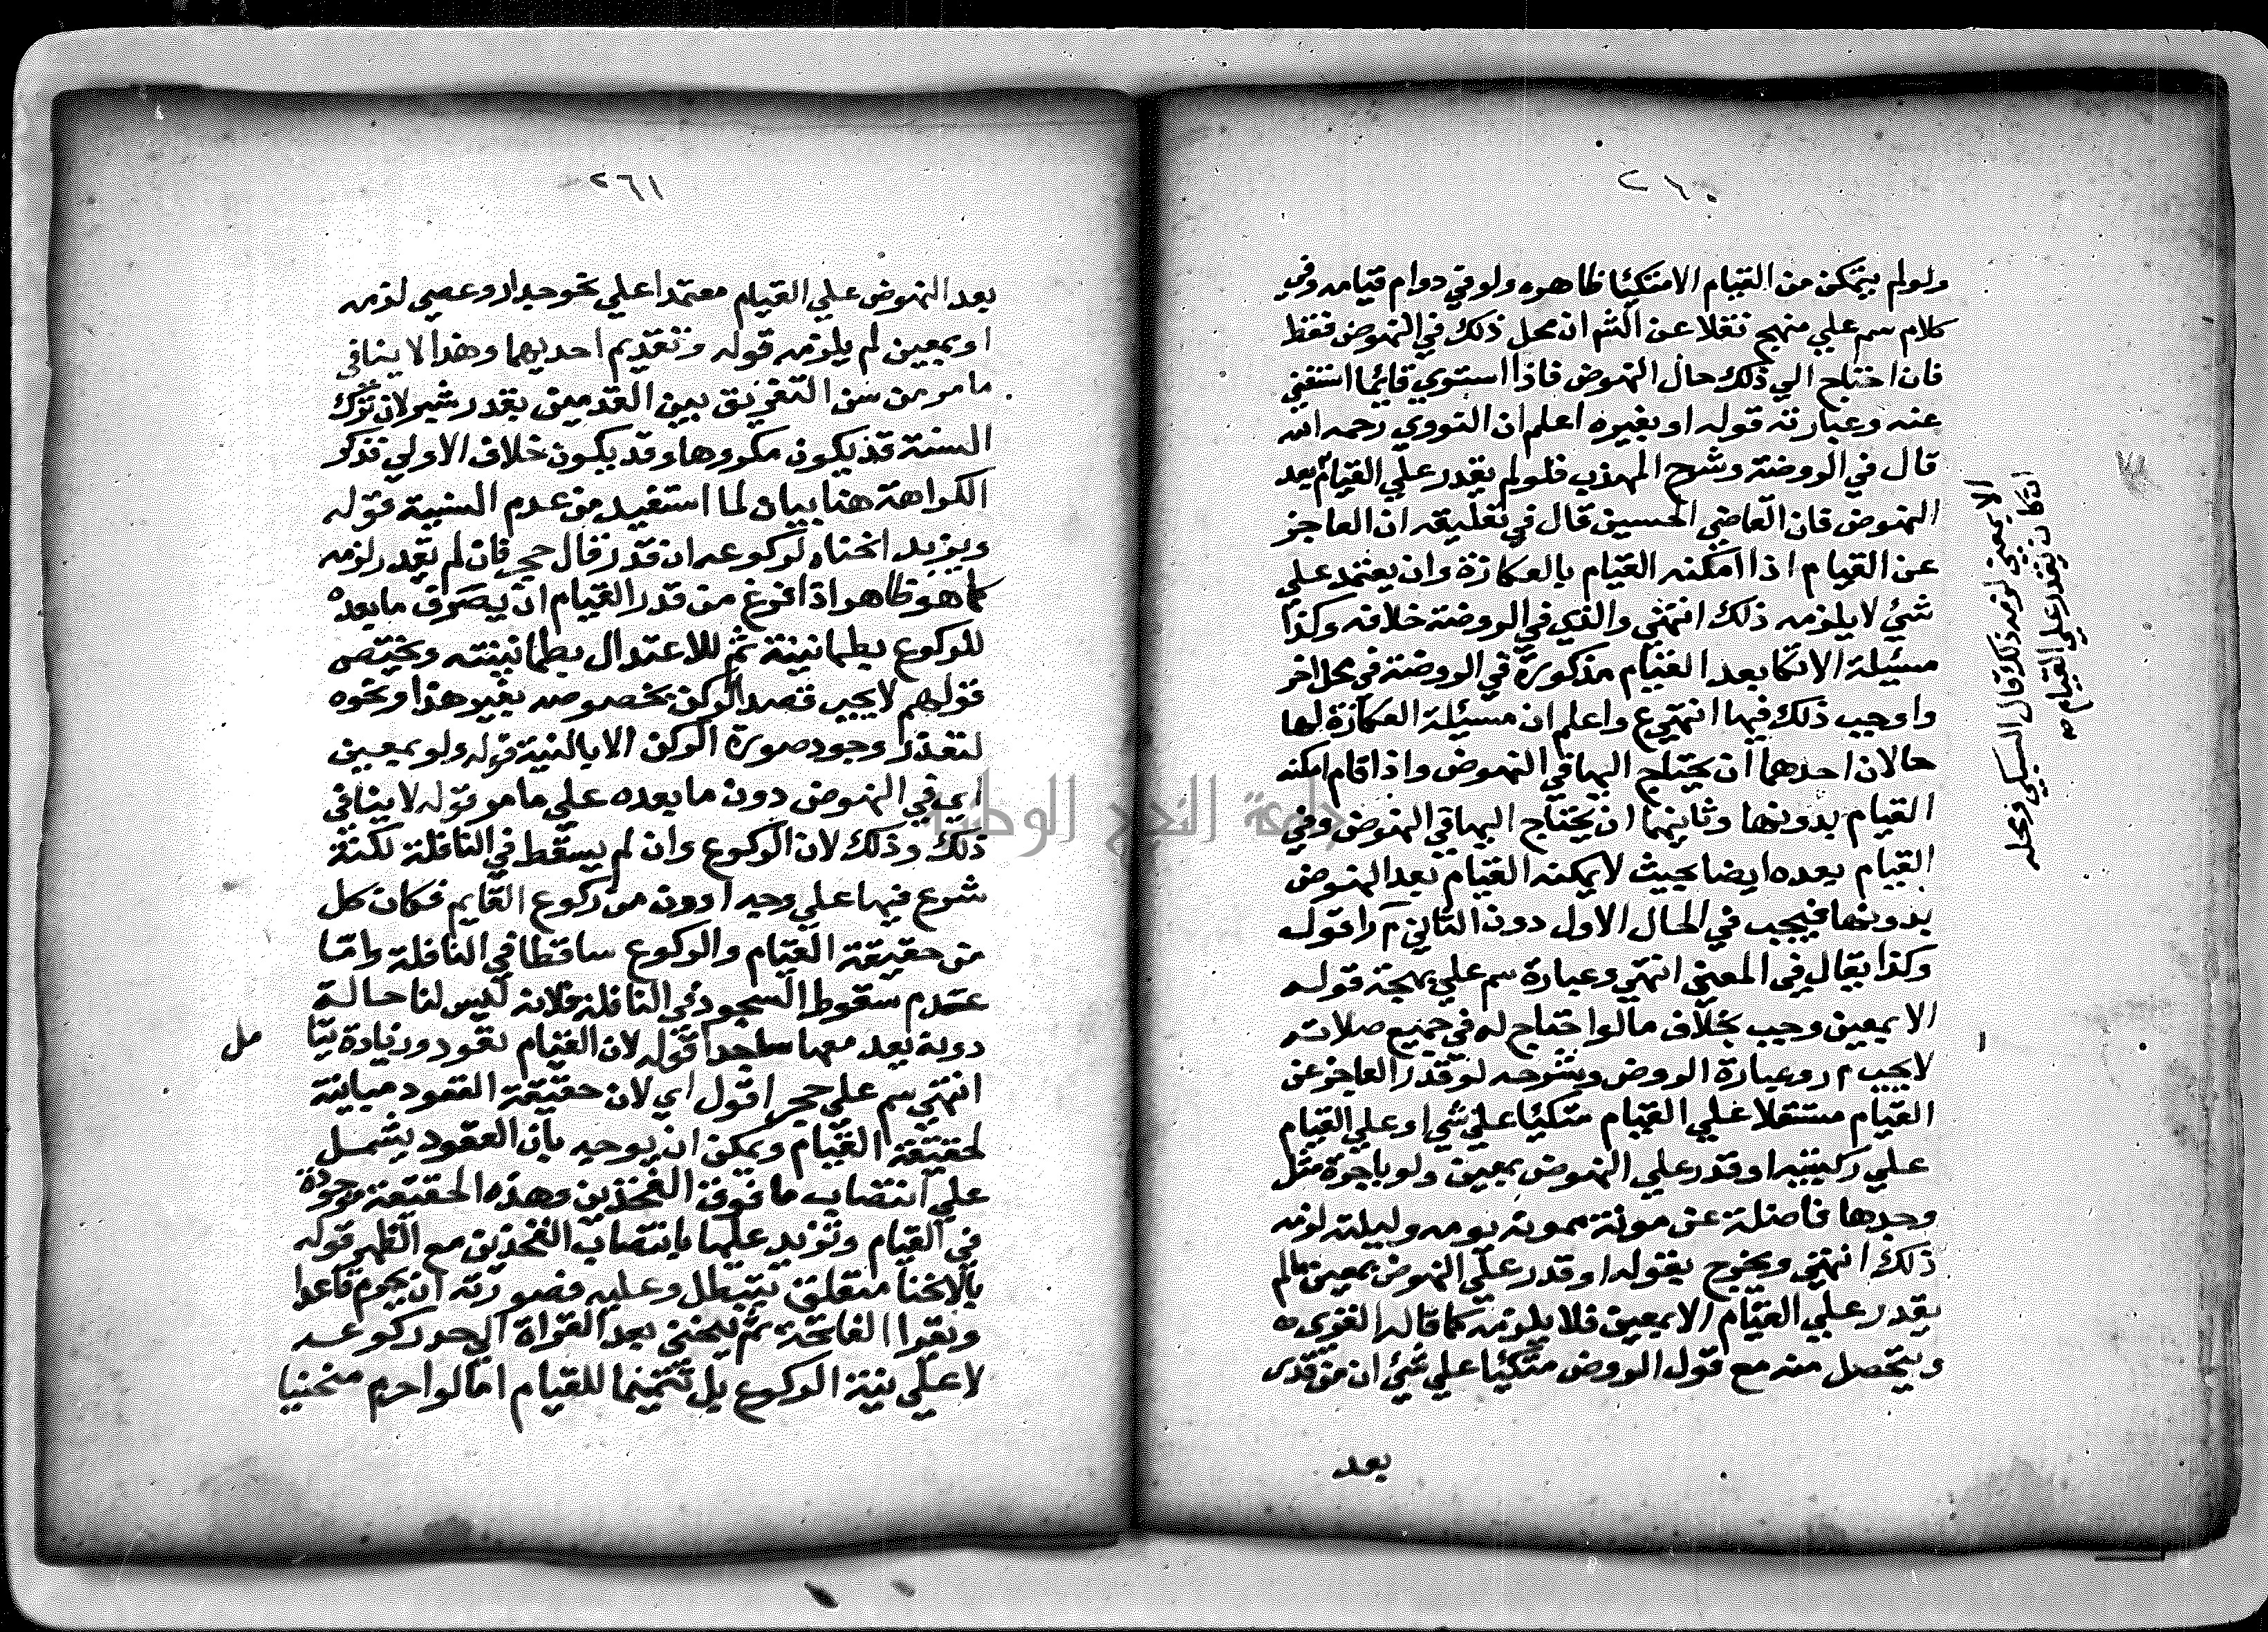 ٢٦٠
ولولم يتمكن من القيام الا متكئا ظاهره ولو في دوام قيامه وفي
كلام سم علي منهج نقلا عن الشم ان محل ذلك في النهوض فقط
فان احتاج الي ذلك حال النهوض فاذا استوي قائما استغني
عنه وعبارته قوله او بغيره اعلم ان النووي رحمه الله
قال في الروضة وشرح المهذب فلولم يقدر علي القيام بعد
النهوض فان القاضي الحسين قال في تعليقه ان العاجز
عن القيام اذا امكنه القيام بالعكازة وان يعتمد علي
شيئ لا يلزمه ذلك انتهي والذي في الروضة خلافه وكذا
مسئيلة الاتكا بعد القيام مذكورة في الروضة في محل اخر
واوجب ذلك فيها انتهي ع واعلم ان مسئيلة العكازة لها
حالان احدهما ان يحتاج اليها في النهوض واذا قام امكنه
القيام بدونها وثانيهما ان يحتاج اليها في النهوض وفي
القيام بعده ايضا بحيث لا يمكنه القيام بعد النهوض
بدونها فيجب في الحال الاول دون الثاني م ر اقول
وكذا يقال في المعني انتهي وعبارة سم علي بهجة قوله
الا بمعين وجب بخلاف مالو احتاج له في جميع صلاته
لا يجب م ر وعبارة الروض وشرحه لو قدر العاجز عن
القيام مستقلا علي القيام متكئا علي شئ او علي القيام
علي ركبتيه او قدر علي النهوض بمعين ولو باجرة مثل
وجدها فاضلة عن مونة ممونه يومه وليلته لزمه
ذلك انتهي ويخرج بقوله او قدر علي النهوض بمعين مالم
يقدر علي القيام الا بمعين فلا يلزمه كما قاله الغزي
ويتحصل منه مع قول الروض متكئا علي شئ ان من قدر
بعد
الا بمعين لزمه ذلك قال السبكي ومحله
ان كان يقدر علي القيام
٢٦١
بعد النهوض علي القيام معتمدا علي نحو جدار وعصي لزمه
او بمعين لم يلزمه قوله وتقديم احديهما وهذا لا ينافي
ما مر من سن التفريق بين القدمين بقدر شبر لان ترك
السنة قد يكون مكروها وقد يكون خلاف الاولي فذكر
الكراهة هنا بيان لما استفيد من عدم السنية قوله
ويزيد انحناه لركوعه ان قدر قال حج فان لم يقدر لزمه
كما هو ظاهر اذا فرغ من قدر القيام ان يصرف ما بعده
للركوع بطمانينة ثم للاعتدال بطمانينته ويختص
قولهم لا يجب قصد الركن بخصوصه بغير هذا ونحوه
لتعذر وجود صورة الركن الا بالنية قوله ولو بمعين
اي في النهوض دون ما بعده علي ما مر قوله لا ينافي
ذلك وذلك لان الركوع وان لم يسقط في النافلة لكنة
شرع فيها علي وجه ادون من ركوع القايم فكان كل
من حقيقة القيام والركوع ساقطا في النافلة واما
عدم سقوط السجود في النافلة فلانه ليس لنا حالة
دونه يعد معها ساجدا قوله لان القيام نقود وزيادة يتا
مل
انتهي سم علي حجر اقول اي لان حقيقة القعود مباينة
لحقيقة القيام ويمكن ان يوجه بان العقود يشمل
علي انتصاب ما فوق الفخذين وهذه الحقيقة موجودة
في القيام وتزيد عليها بانتصاب الفخذين مع الظهر قوله
بالانحنا متعلق بتبطل وعليه فصورته ان يحرم قاعدا
ويقرا الفاتحة ثم ينحني بعد القراة الي حد ركوعه
لا علي نية الركوع بل تتميما للقيام اما لو احرم منحنيا
جامعة النجاح الوطنية